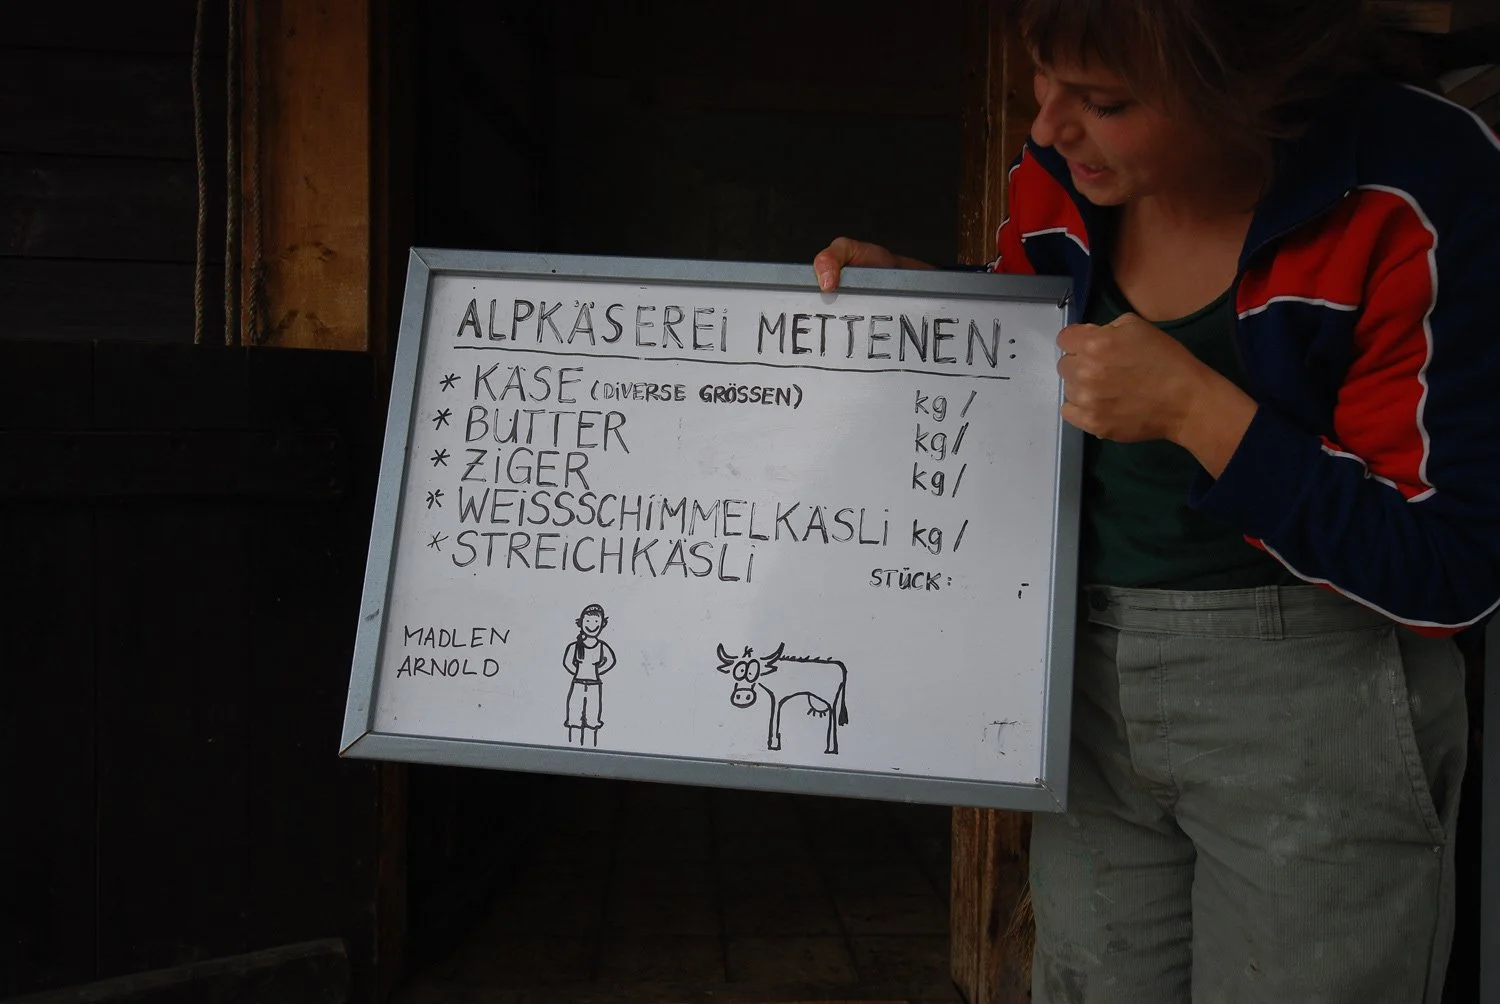 ALPKÄSEREi METTENEN:
* KÄSE (DiVERSE GRÖSSEN) kg /
* BUTTER kg/
* ZiGER kg/
* WEiSSSCHiMMELKÄSLi kg/
* STREiCHKÄSLi STÜCK: .-
MADLEN
ARNOLD